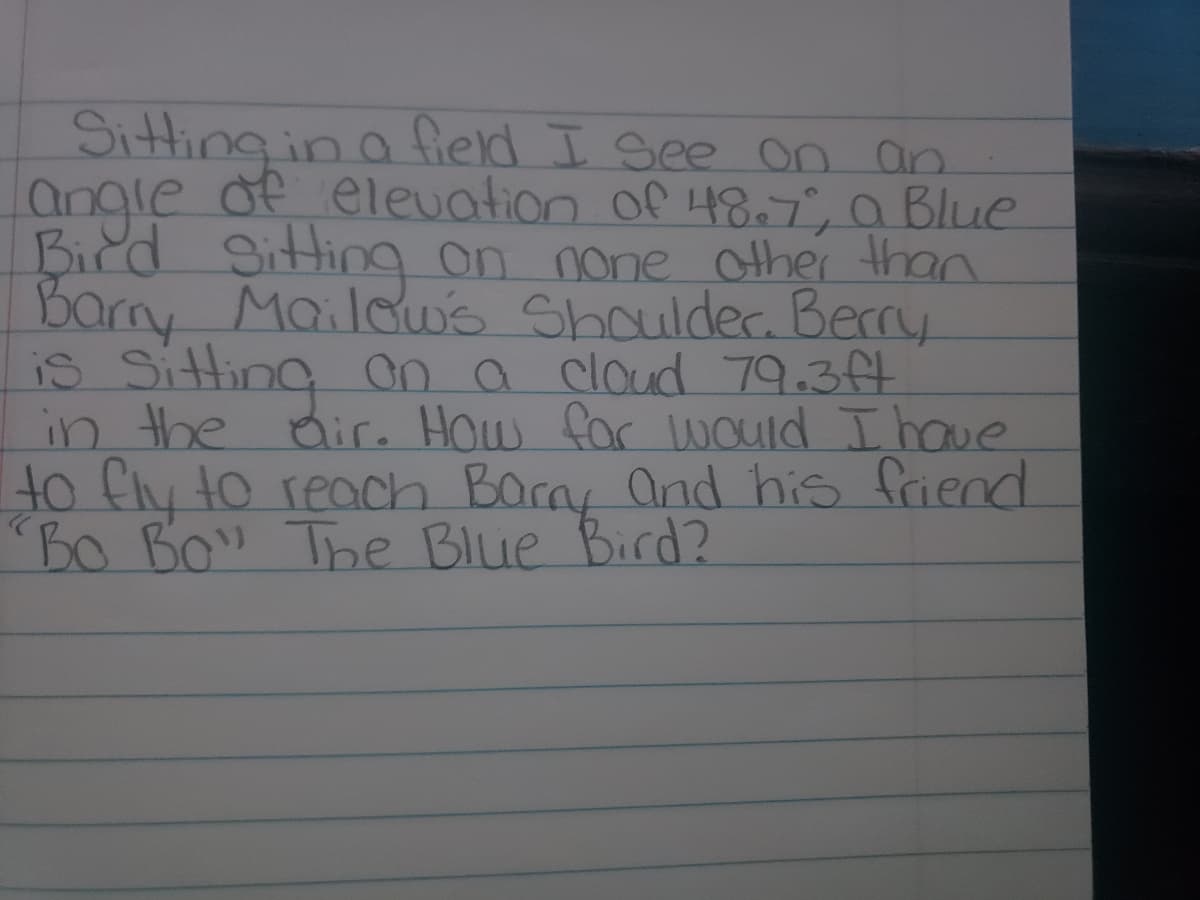 Sitting in a field I see on an
angle of elevation of 48.7°, a Blue
Bird sitting on none other than
Barry Mailow's Shoulder. Berry
is Sitting on a cloud 79.3ft
in the air. How far would I have
to fly to reach Barry and his friend
"Bo Bo" The Blue Bird?